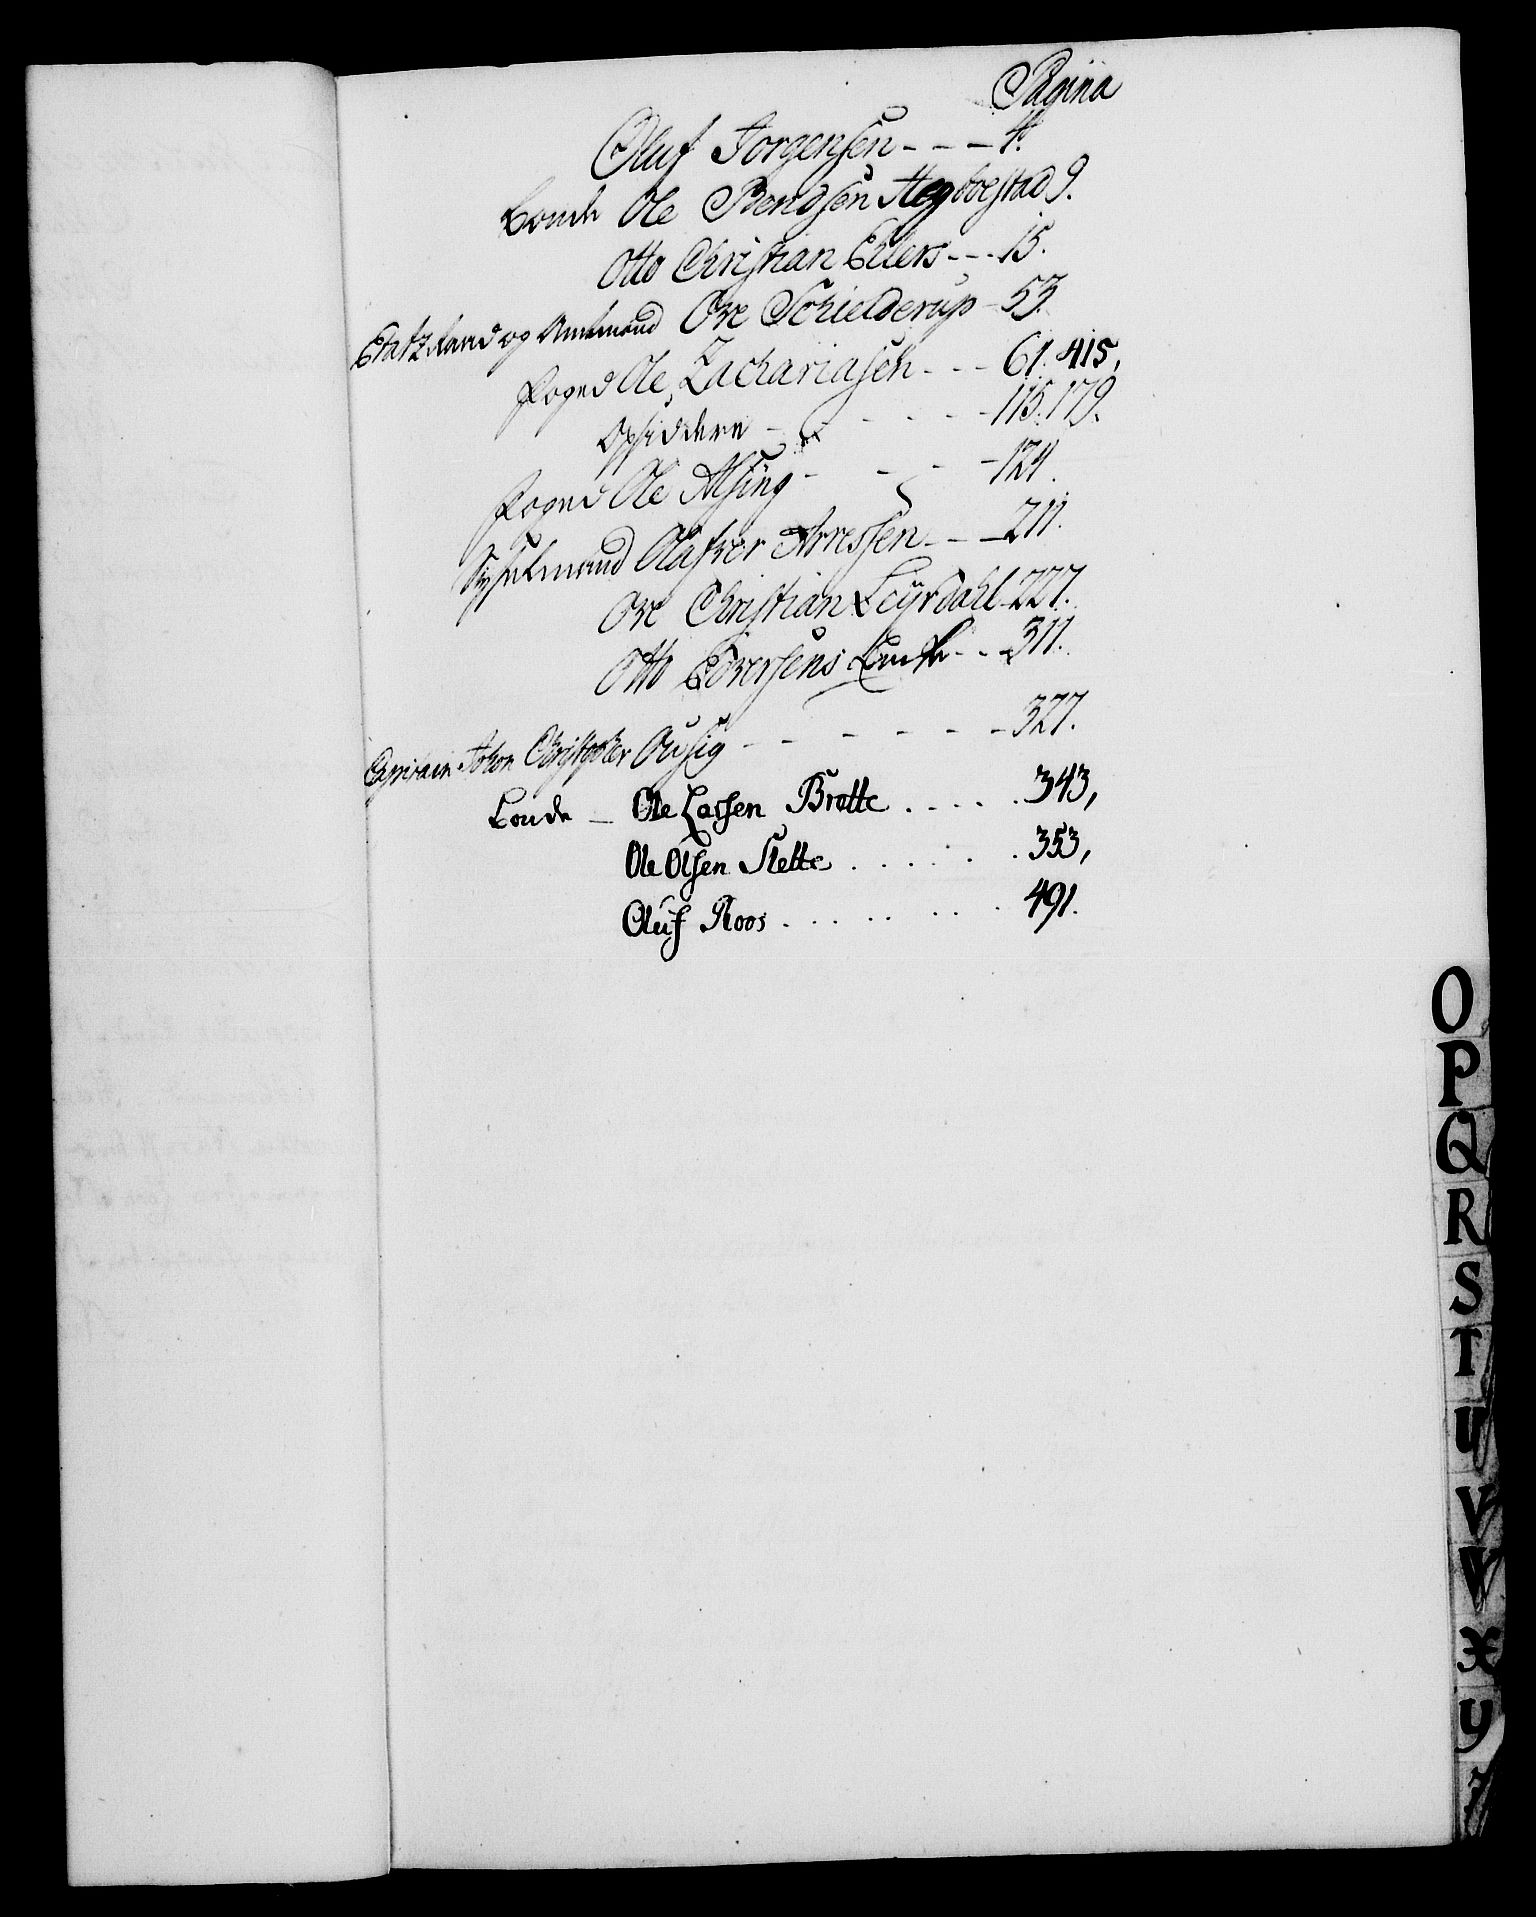 Pagina
Oluf Jorgensen - - - 4.
Bonde Ole Bendsen Hegboestad 9.
Otto Christian Ehlers - - - 15.
Etatzraad og Amtmand Ove Schielderup - 53.
Foged Ole Zachariasen - - - 61. 415,
Opsiddere - - - - 115. 179.
Foged Ole Alsing - - - - 124.
Sysselmand Olafver Arnessen - - - 211.
Ove Christian Leyrdahl - 227.
Otto Edversens Enke - - - 311.
Capitain Johan Christopher Ousig - - - - - - 327.
Bonde - Ole Larssen Brotte . . . . . 343,
Ole Olsen Slette . . . . . . 353,
Oluf Roos . . . . . . . . 491.
O
P
Q
R
S
T
U
V
W
X
Y